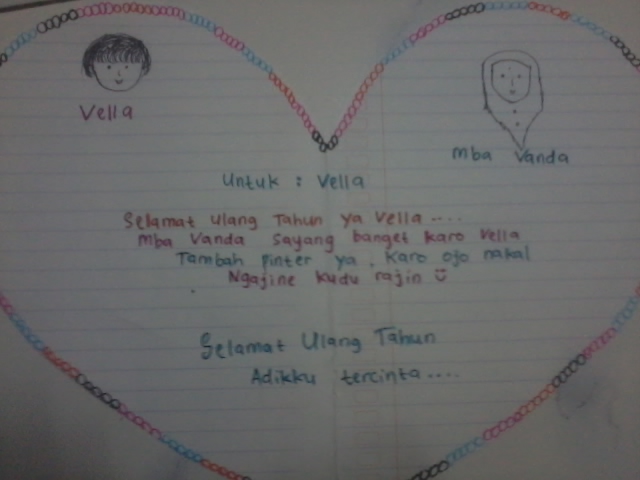 Vella
mba Vanda
Untuk : Vella
Selamat Ulang Tahun ya Vella ....
Mba Vanda sayang banget karo Vella
Tambah Pinter ya . Karo ojo nakal
Ngajine kudu rajin
Selamat Ulang Tahun
Adikku tercinta ....